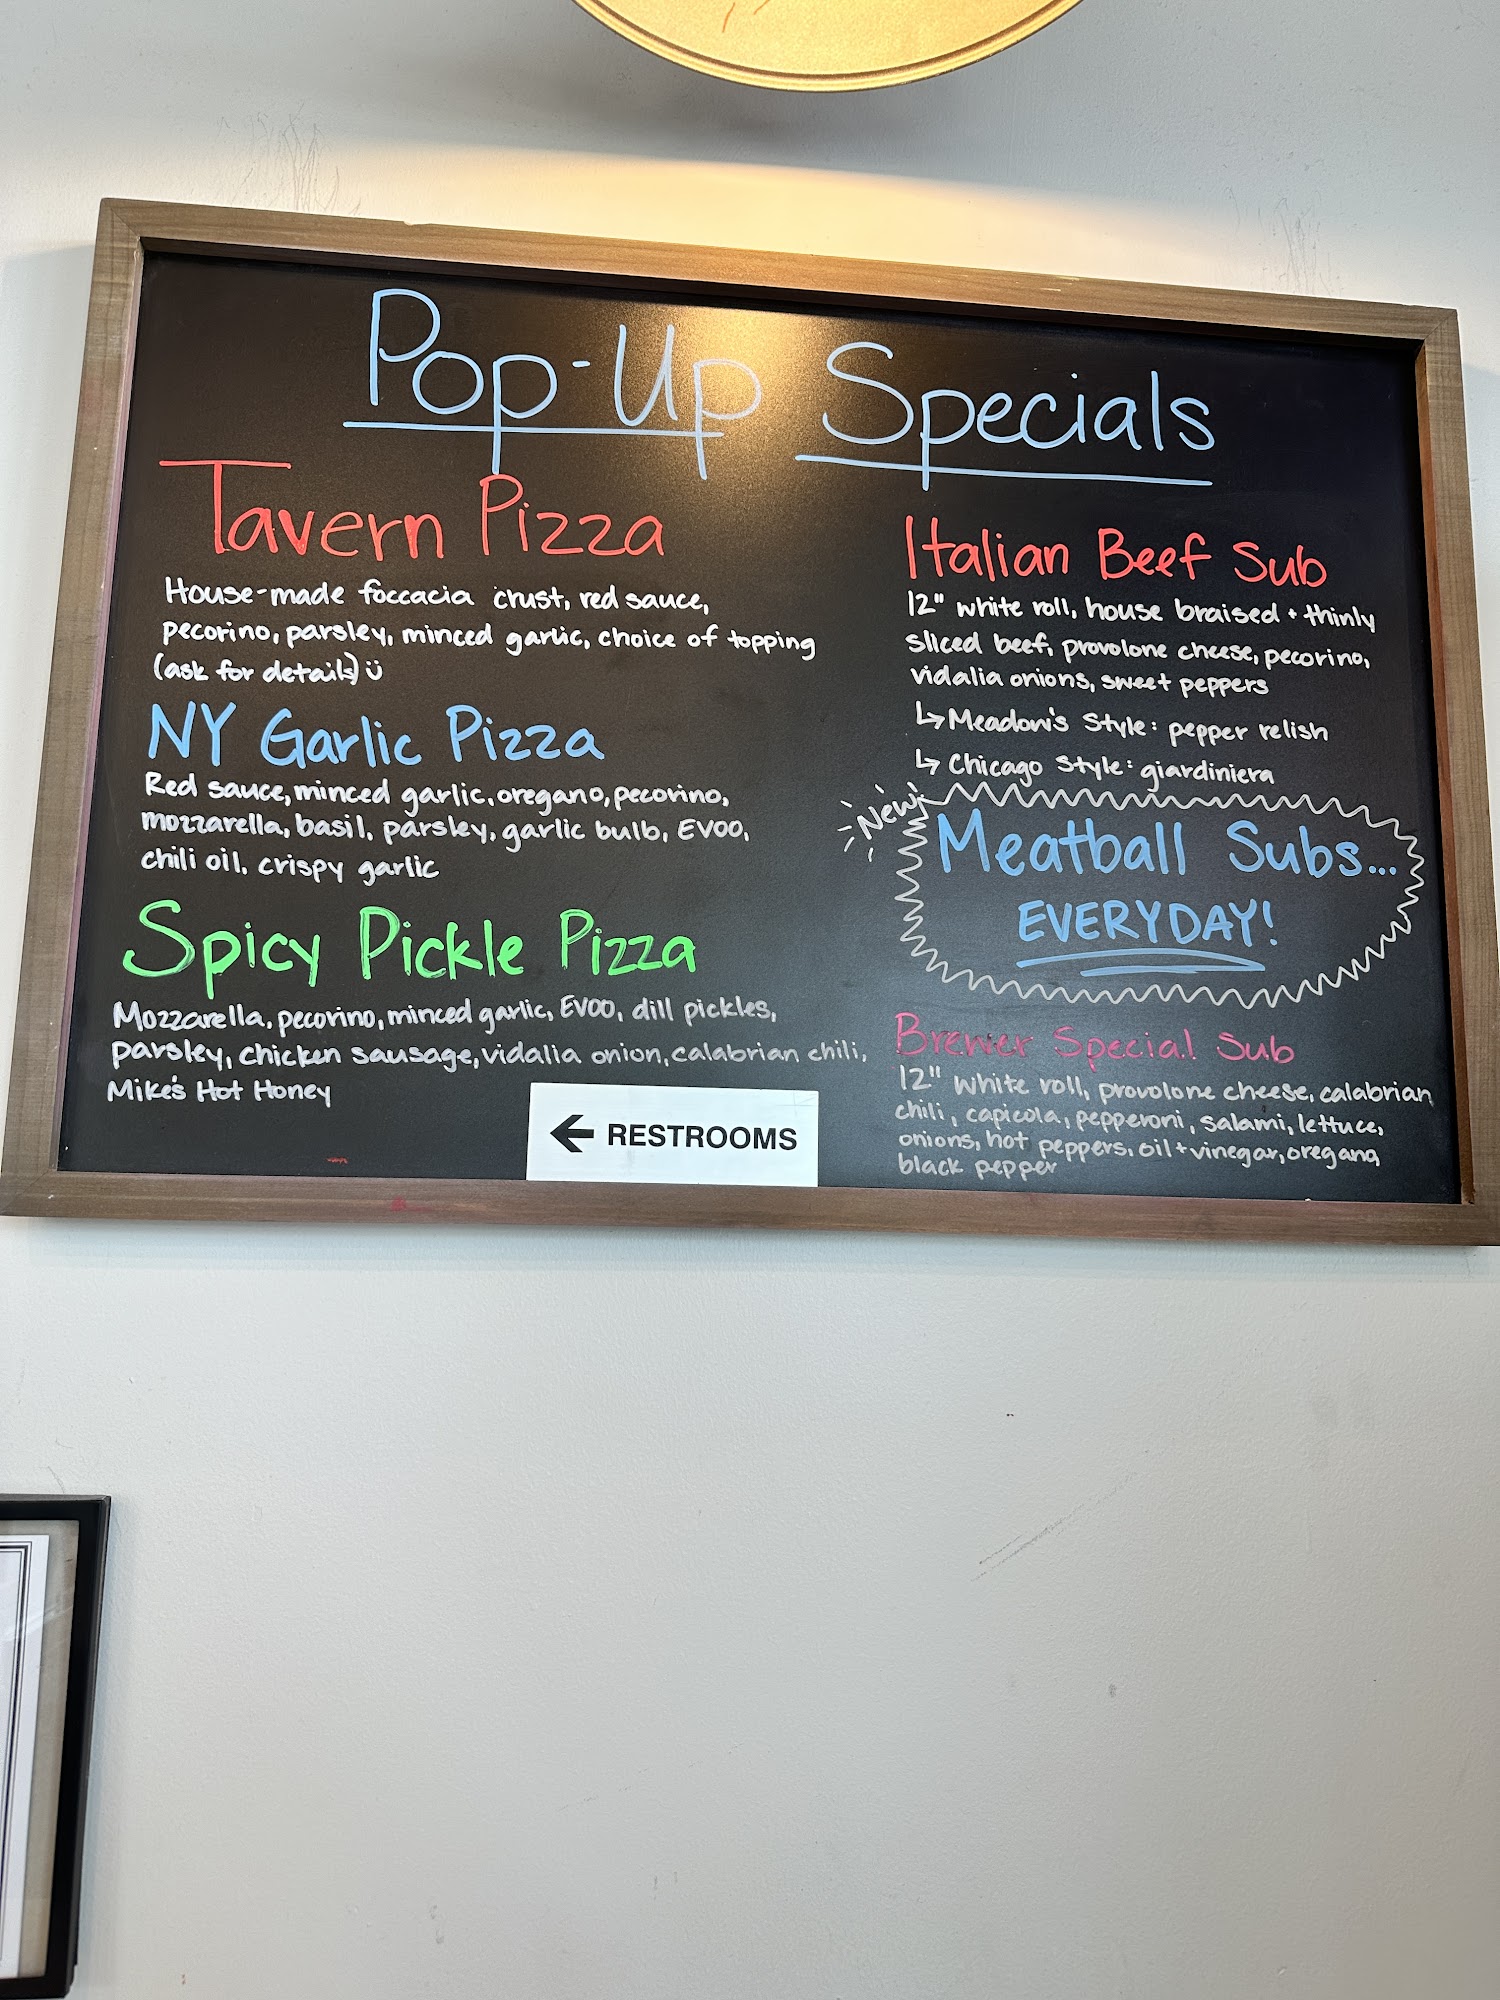 Pop-Up Specials
Tavern Pizza
House-made foccacia crust, red sauce,
pecorino, parsley, minced garlic, choice of topping
(ask for details) Ü
NY Garlic Pizza
Red sauce, minced garlic, oregano, pecorino,
mozzarella, basil, parsley, garlic bulb, EVOO,
chili oil, crispy garlic
Spicy Pickle Pizza
Mozzarella, pecorino, minced garlic, EVOO, dill pickles,
parsley, chicken sausage, vidalia onion, calabrian chili,
Mike's Hot Honey
← RESTROOMS
Italian Beef Sub
12" white roll, house braised + thinly
sliced beef, provolone cheese, pecorino,
vidalia onions, sweet peppers
↳ Meadow's Style: pepper relish
↳ Chicago Style: giardiniera
New!
Meatball Subs...
EVERYDAY!
Brewer Special Sub
12" white roll, provolone cheese, calabrian
chili, capicola, pepperoni, salami, lettuce,
onions, hot peppers, oil + vinegar, oregano,
black pepper